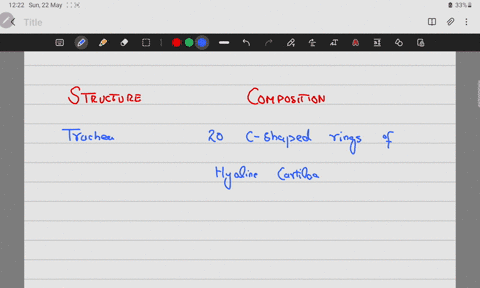 12:22 Sun, 22 May
33%
Title
STRUCTURE COMPOSITION
Trachea 20 C-shaped rings of
Hyaline Cartilea